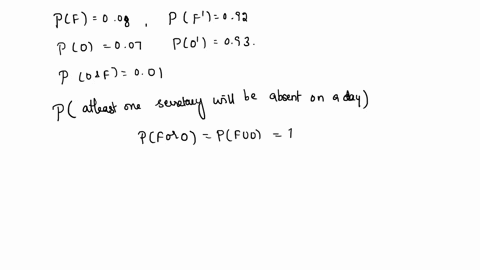 P(F) = 0.08 , P(F') = 0.92
P(O) = 0.07 P(O') = 0.93.
P(O&F) = 0.01
P( atleast one secretary will be absent on a day)
P(F or O) = P(F∪O) = 1